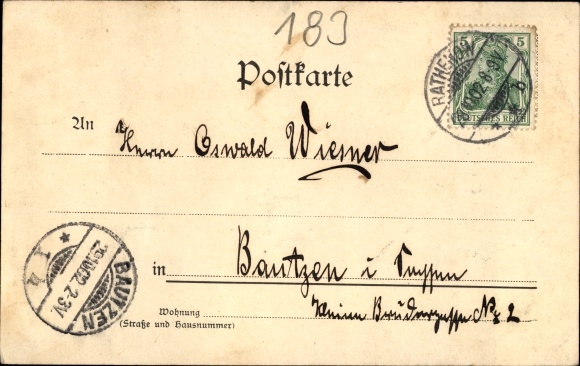 183
5 5
DEUTSCHES REICH
RATHENOW
Postkarte
An Herrn Oswald Wiesner
BAUTZEN
in Bautzen i Sachsen
Wohnung Kleine Brüdergasse No 2
(Straße und Hausnummer)